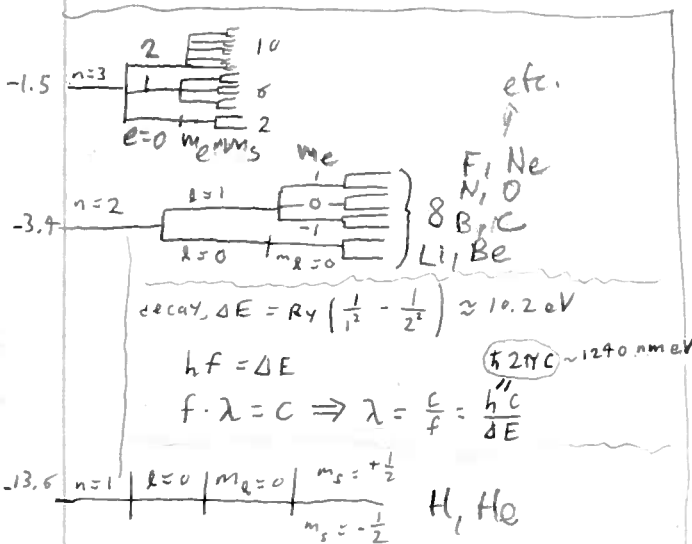 2 10
-1.5 n=3 1 6
2
e=0 me ms
etc.
me
F, Ne
1
N, O
n=2 l=1 0 8 B, C
-3.4 -1
l=0 ml=0 Li, Be
decay, ΔE = Ry (1/1² - 1/2²) ≈ 10.2 eV
hf = ΔE ħ2πc ~1240 nm eV
f · λ = c ⇒ λ = c/f = hc/ΔE
-13.6 n=1 l=0 ml=0 ms=+1/2
H, He
ms=-1/2